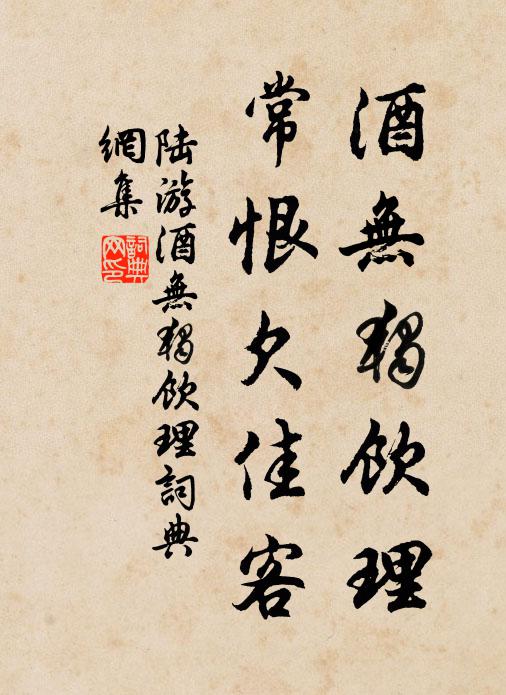 酒無獨飲理
常恨欠佳客
陸游酒無獨飲理詞典
網集
詞典
网印